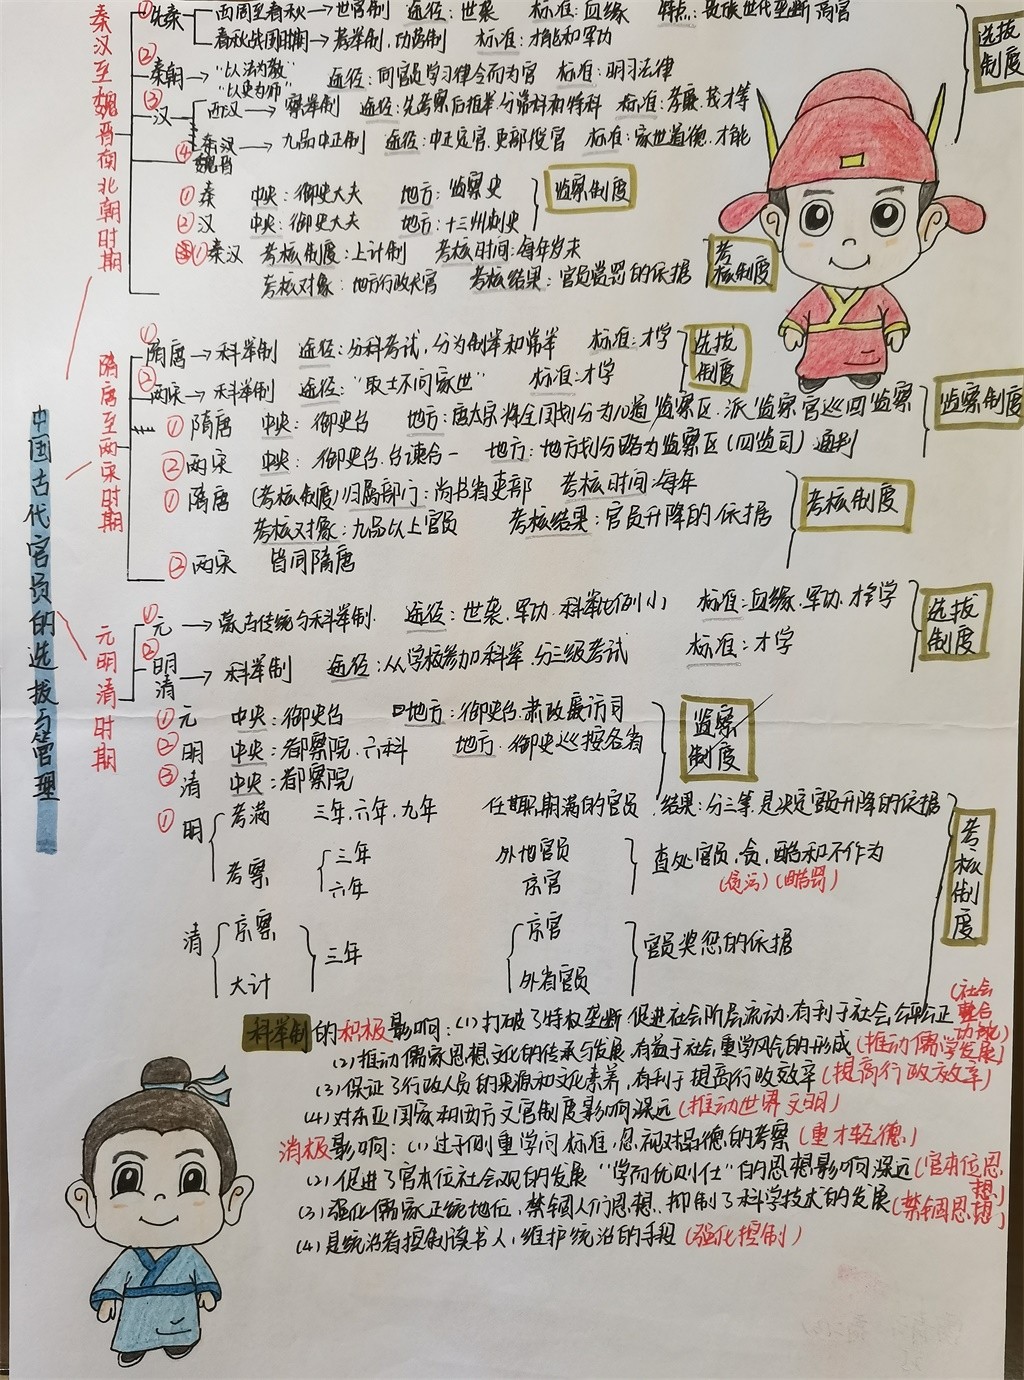 中国古代官员的选拔与管理
秦汉至魏晋南北朝时期
① 先秦 西周至春秋→世官制 途径:世袭 标准:血缘 特点:贵族世代垄断高官
春秋战国时期→荐举制,功劳制 标准:才能和军功
选拔制度
② 秦朝→"以法为教" "以吏为师" 途径:向官员学习律令而为官 标准:明习法律
③ 汉 西汉→察举制 途径:先考察后推举分常科和特科 标准:孝廉,茂才等
④ 东汉魏晋→九品中正制 途径:中正定官,吏部授官 标准:家世道德.才能
① 秦 中央:御史大夫 地方:监察史
监察制度
② 汉 中央:御史大夫 地方:十三州刺史
① 秦汉 考核制度:上计制 考核时间:每年岁末
考核制度
考核对象:地方行政长官 考核结果:官员赏罚的依据
隋唐至两宋时期
① 隋唐→科举制 途径:分科考试,分为制举和常举 标准:才学
选拔制度
② 两宋→科举制 途径:"取士不问家世" 标准:才学
① 隋唐 中央:御史台 地方:唐太宗将全国划分为10道监察区.派监察官巡回监察
监察制度
② 两宋 中央:御史台.台谏合一 地方:地方划分路为监察区(四监司)通判
① 隋唐 (考核制度)归属部门:尚书省吏部 考核时间:每年
考核制度
考核对象:九品以上官员 考核结果:官员升降的依据
② 两宋 皆同隋唐
元明清时期
① 元→蒙古传统与科举制. 途径:世袭.军功.科举比例小 标准:血缘.军功.才学
选拔制度
② 明清→科举制 途径:从学校参加科举.分三级考试 标准:才学
① 元 中央:御史台 地方:御史台.肃政廉访司
监察制度
② 明 中央:都察院,六科 地方.御史巡按各省
③ 清 中央:都察院
① 明 考满 三年,六年,九年 任职期满的官员 结果:分三等,是决定官员升降的依据
考核制度
考察 三年 六年 外地官员 京官 查处官员,贪,酷和不作为
(贪污)(酷罚)
清 京察 大计 三年 京官 外省官员 官员奖惩的依据
科举制的积极影响:(1)打破了特权垄断.促进社会阶层流动.有利于社会公平公正(社会整合功能)
(2)推动儒家思想文化的传承与发展.有益于社会重学风气的形成(推动儒学发展)
(3)保证了行政人员的来源和文化素养,有利于提高行政效率(提高行政效率)
(4)对东亚国家和西方文官制度影响深远(推动世界文明)
消极影响:(1)过于侧重学问标准,忽视对品德的考察(重才轻德)
(2)促进了官本位社会观的发展"学而优则仕"的思想影响深远(官本位思想)
(3)强化儒家正统地位,禁锢人们思想.抑制了科学技术的发展(禁锢思想)
(4)是统治者控制读书人,维护统治的手段(强化控制)